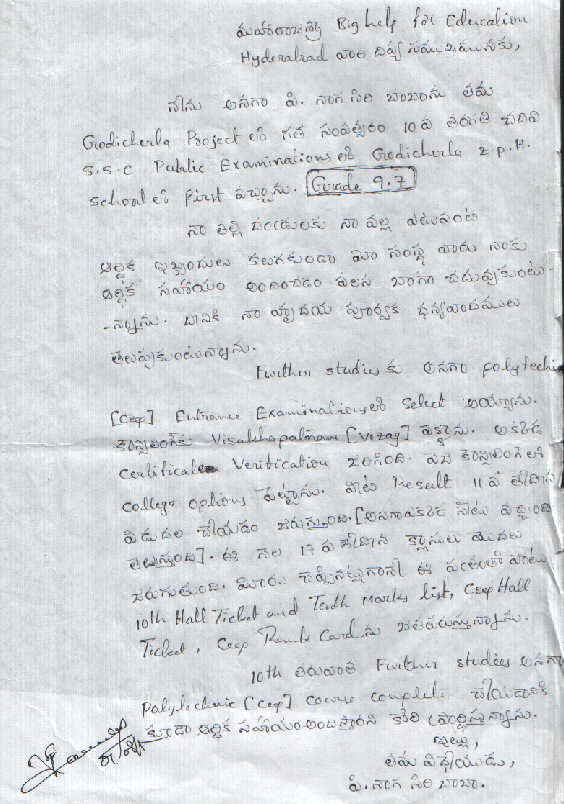 మహారాజశ్రీ Big help for Education
Hyderabad వారి దివ్య సముఖమునకు,
నేను అనగా పి. నాగ సిరి బాబాను తమ
Godicherla Project లో గత సంవత్సరం 10వ తరగతి చదివి
S.S.C Public Examinations లో Godicherla Z.P.H.
School లో first వచ్చాను. Grade 9.7
నా తల్లి దండ్రులకు నా వల్ల ఎటువంటి
ఆర్థిక ఇబ్బందులు కలుగకుండా మీ సంస్థ వారు నాకు
ఆర్థిక సహాయం అందించడం వలన బాగా చదువుకుంటు
-న్నాను. దానికి నా హృదయ పూర్వక ధన్యవాదములు
తెలుపుకుంటున్నాను.
Further studies కు అనగా polytechnic
[Ceep] Entrance Examinations లో Select అయ్యాను.
కౌన్సిలింగ్‌కు Visakhapatnam [Vizag] వెళ్ళాను. అక్కడ
Certificate Verification జరిగింది. వెబ్ కౌన్సిలింగ్ లో
college options పెట్టాను. వీటి Result 11వ తేదీన
విడుదల చేయడం జరుస్తుంది. [అనగా ఎక్కడ సీటు వచ్చింది
తెలుస్తుంది]. ఈ నెల 17వ తేదీన క్లాసులు మొదలు
జరుగుతుంది. మీరు చెప్పినట్లుగానే ఈ పత్రంతో పాటు
10th Hall Ticket and Tenth Marks list, Ceep Hall
Ticket, Ceep Rank Card ను జతపరుస్తున్నాను.
10th తరువాత Further studies అనగా
Polytechnic [Ceep] course complete చేయడానికి
కూడా ఆర్థిక సహాయం అందిస్తారని కోరి ప్రార్థిస్తున్నాను.
ఇట్లు,
తమ విధేయుడు,
పి. నాగ సిరి బాబా.